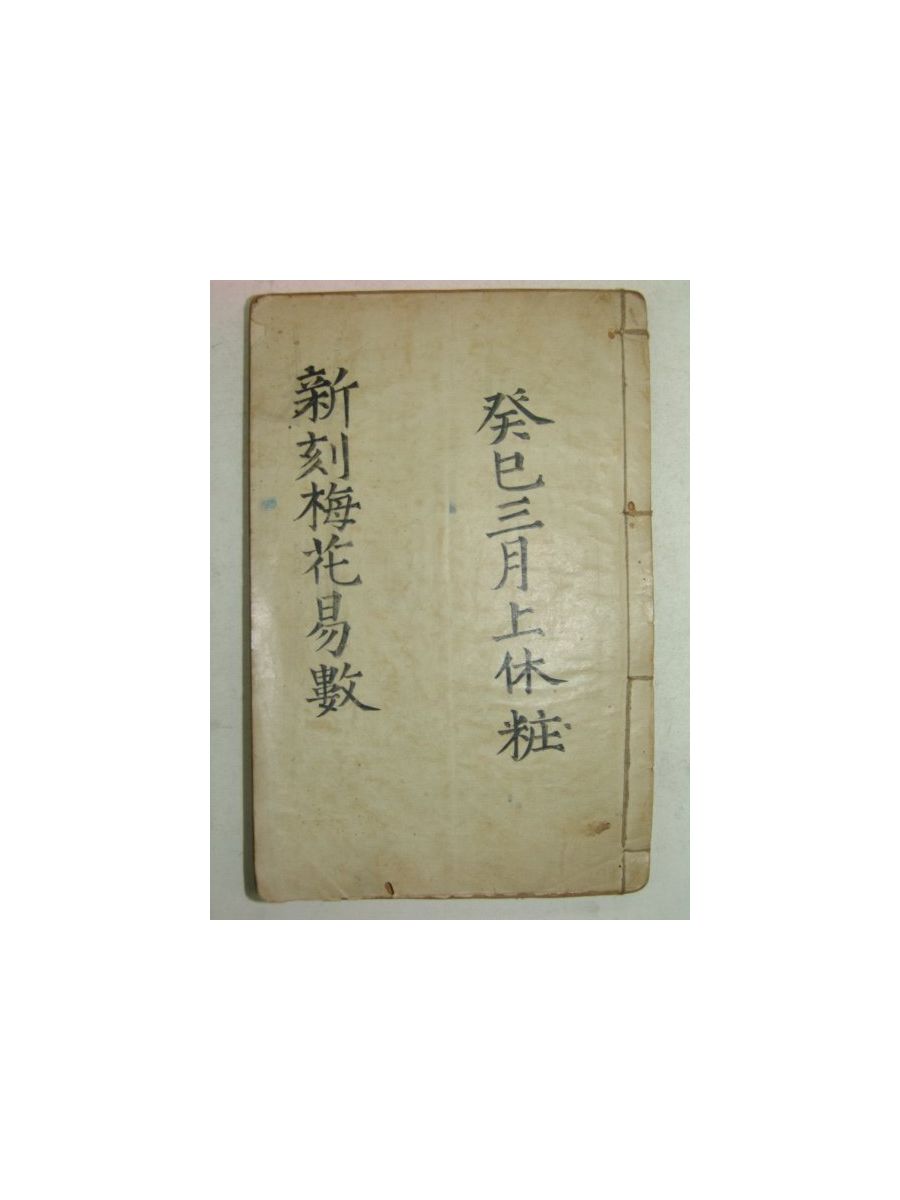 癸巳三月上休粧
新刻梅花易數